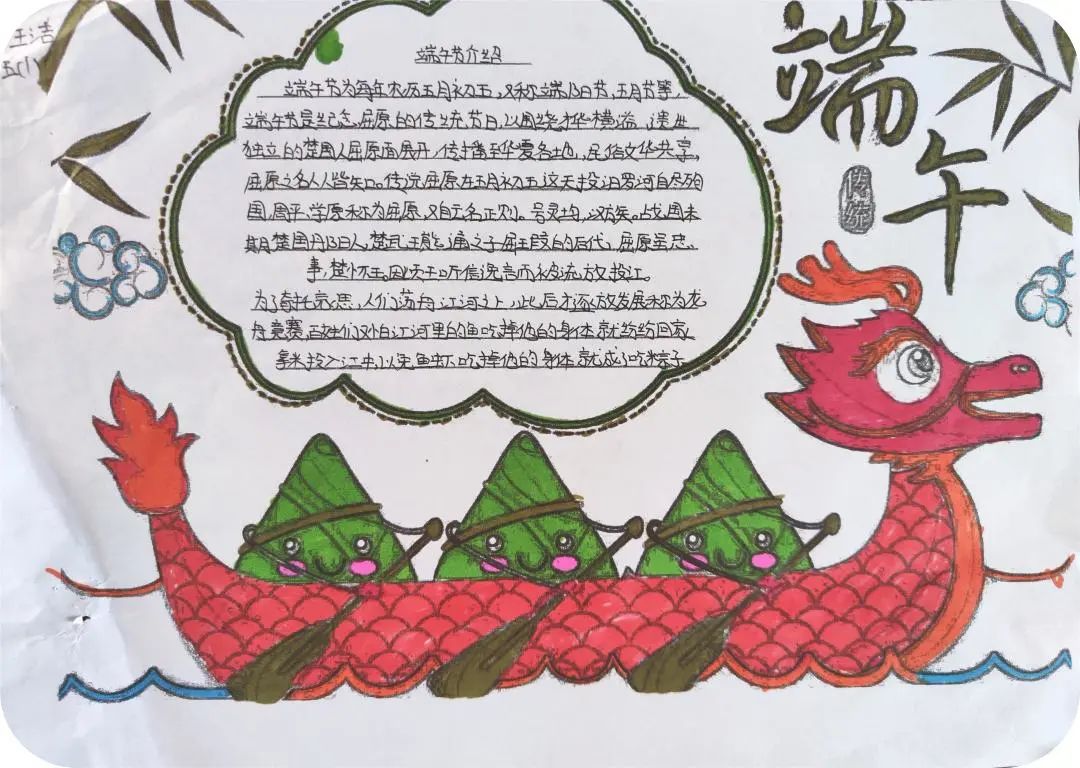 王洁
五(1)
端午
传统
端午节介绍
端午节为每年农历五月初五，又称端阳节，五月节等，
端午节是纪念屈原的传统节日，以围绕才华横溢、遗世
独立的楚国人屈原而展开，传播至华夏各地，民俗文华共享，
屈原之名人人皆知。传说屈原在五月初五这天投汨罗河自尽殉
国，屈平，字原称为屈原，又自云名正则。号灵均，汉族。战国末
期楚国丹阳人，楚武王熊通之子屈瑕的后代，屈原虽忠
事，楚怀王。因怀王听信谗言而被流放投江。
为了寄托哀思，人们荡舟江河之上，此后才逐放发展称为龙
舟竞赛，百姓们又怕江河里的鱼吃掉他的身体就纷纷回家
拿米投入江中，以免鱼虾吃掉他的身体就成了吃粽子